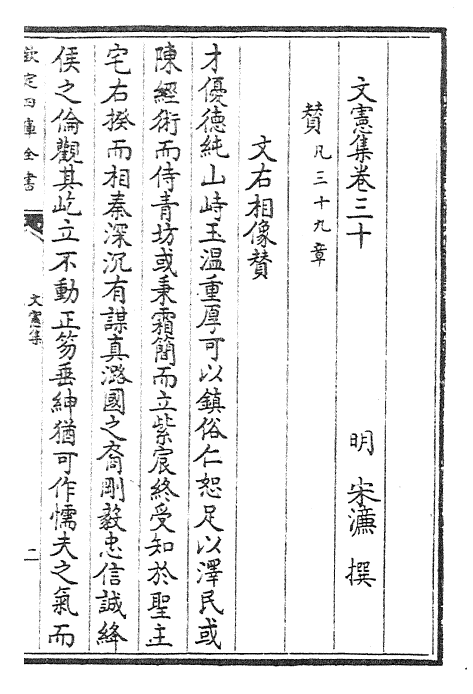 文憲集卷三十
明　宋濂　撰
贊凡三十九章
文右相像贊
才優徳純山峙玉溫重厚可以鎮俗仁恕足以澤民或
陳經術而侍青坊或秉霜簡而立紫宸終受知於聖主
宅右揆而相秦深沉有謀真潞國之裔剛毅忠信誠絳
侯之倫觀其屹立不動正笏垂紳猶可作懦夫之氣而
欽定四庫全書
文憲集
二